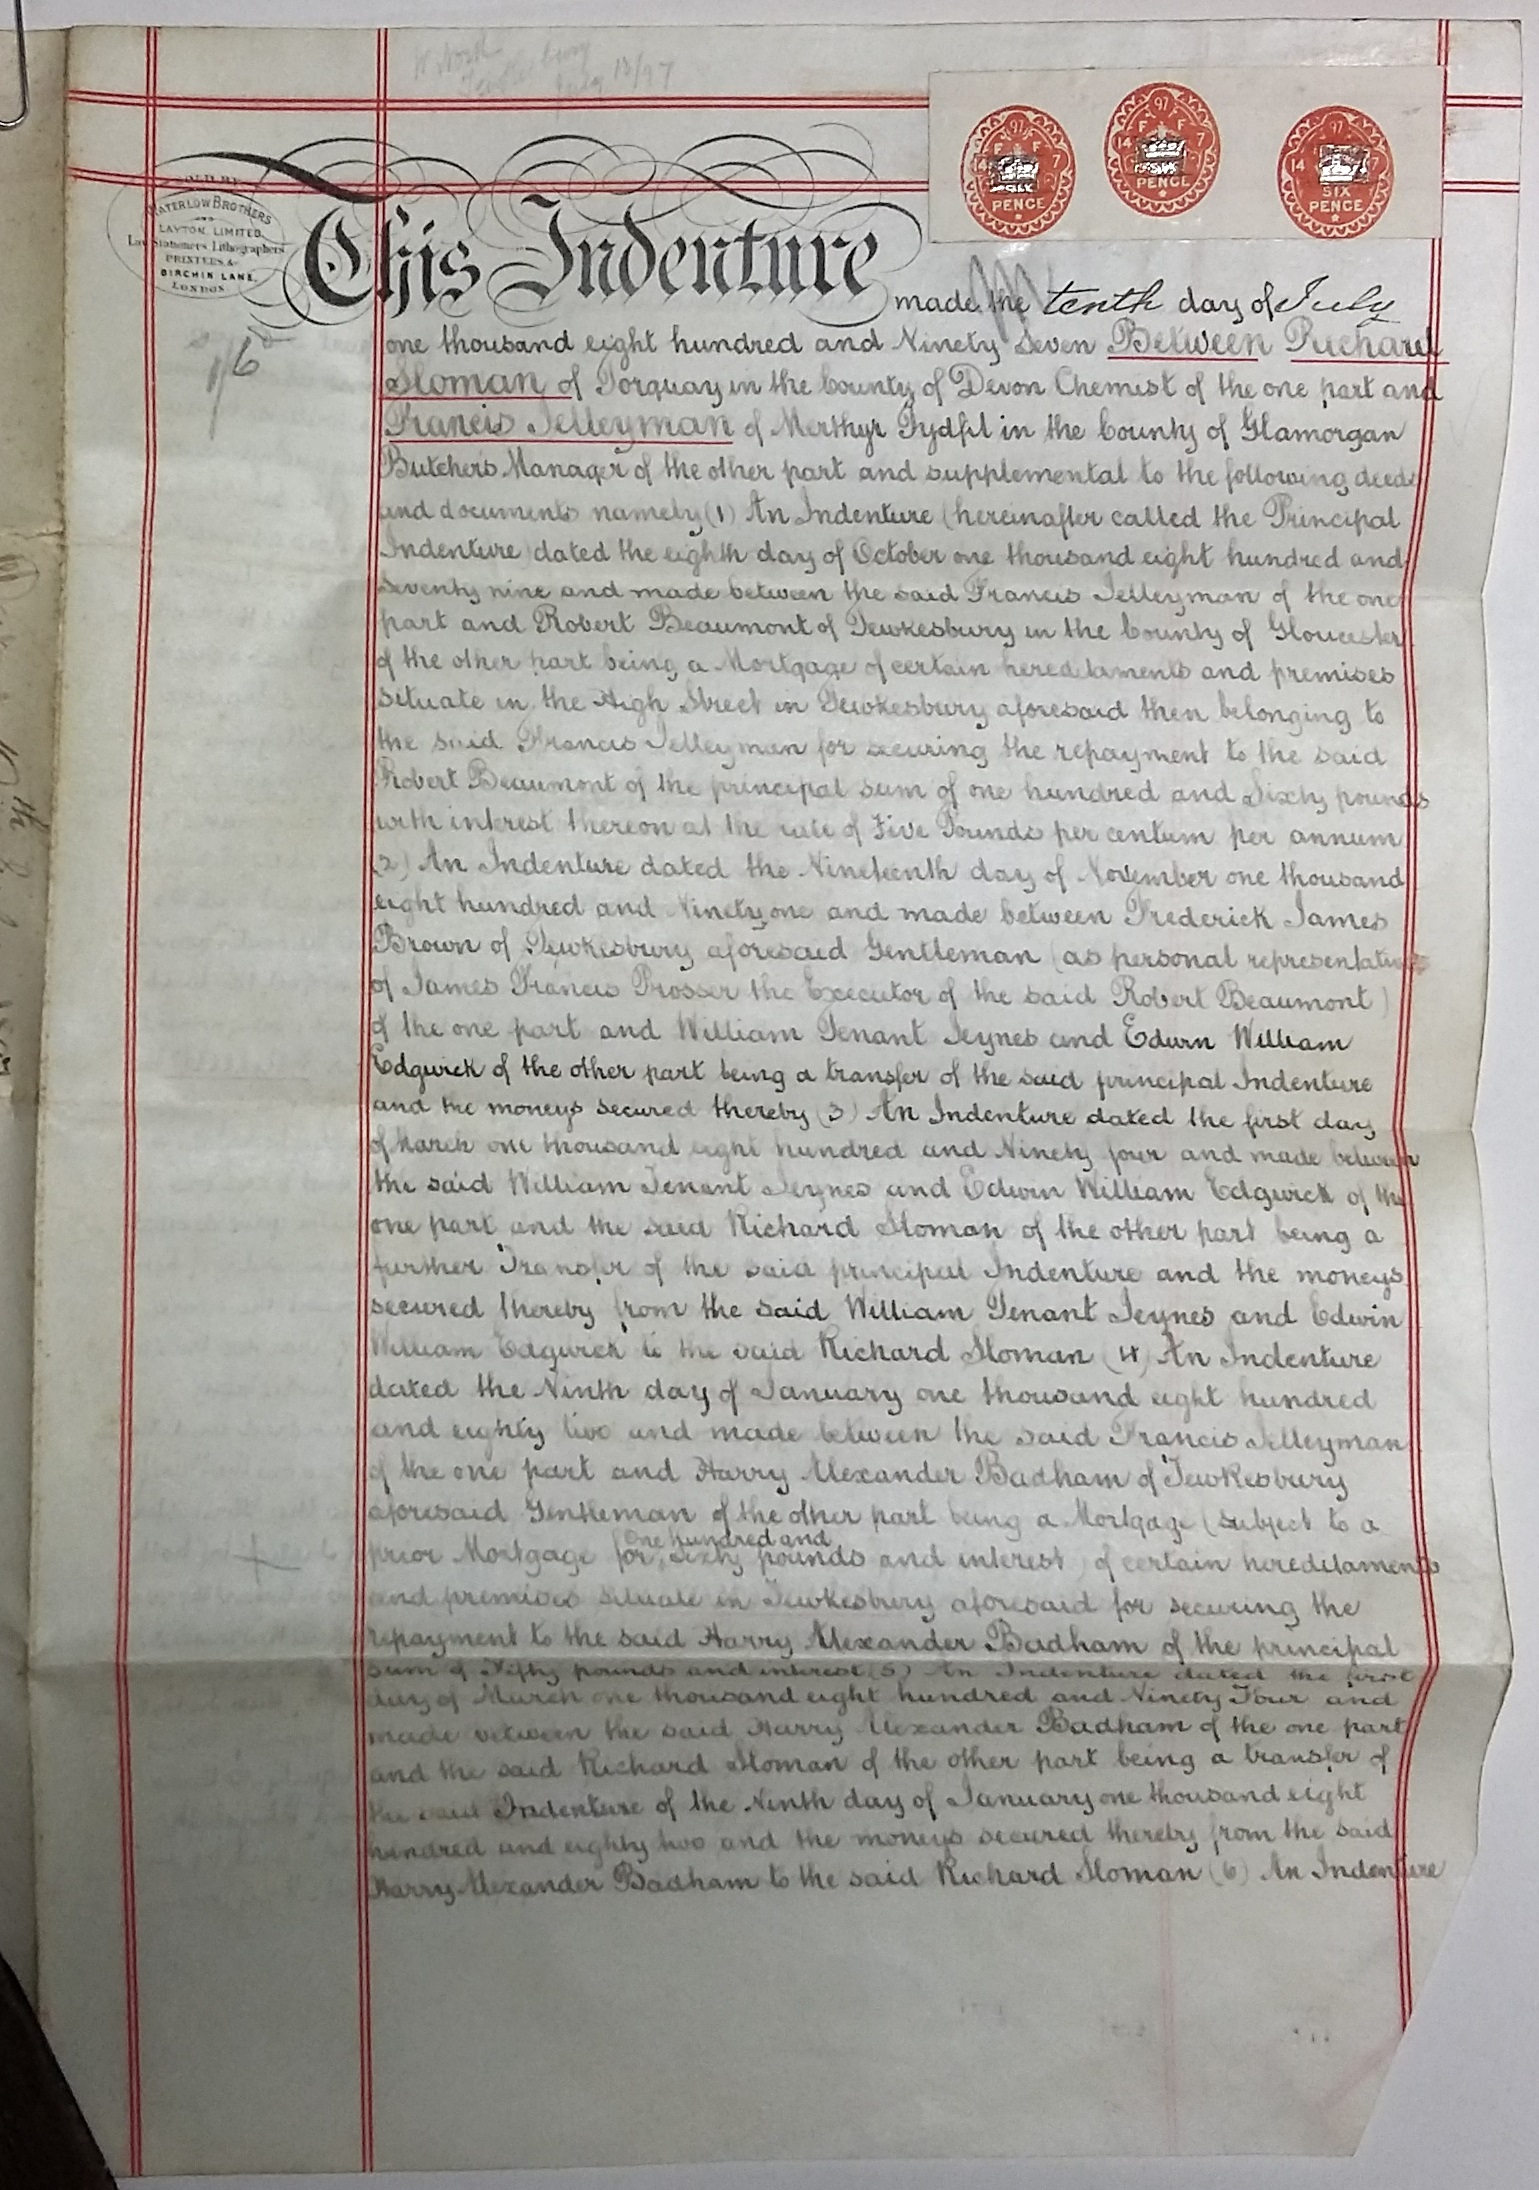 July 13/97
97
F F
14 7
SIX
PENCE
97
F F
14 7
SIX
PENCE
97
14 7
SIX
PENCE
SOLD BY
WATERLOW BROTHERS
AND
LAYTON, LIMITED
Law Stationers, Lithographers
PRINTERS &c
BIRCHIN LANE,
LONDON.
This Indenture made the tenth day of July
1/6
one thousand eight hundred and Ninety Seven Between Richard
Sloman of Torquay in the County of Devon Chemist of the one part and
Francis Jelleyman of Merthyr Tydfil in the County of Glamorgan
Butchers Manager of the other part and supplemental to the following deeds
and documents namely (1) An Indenture (hereinafter called the Principal
Indenture) dated the eighth day of October one thousand eight hundred and
seventy nine and made between the said Francis Jelleyman of the one
part and Robert Beaumont of Tewkesbury in the County of Gloucester
of the other part being a Mortgage of certain hereditaments and premises
situate in the High Street in Tewkesbury aforesaid then belonging to
the said Francis Jelleyman for securing the repayment to the said
Robert Beaumont of the principal sum of one hundred and Sixty pounds
with interest thereon at the rate of Five Pounds per centum per annum
(2) An Indenture dated the Nineteenth day of November one thousand
eight hundred and Ninety one and made between Frederick James
Brown of Tewkesbury aforesaid Gentleman (as personal representative
of James Francis Prosser the Executor of the said Robert Beaumont)
of the one part and William Tenant Jeynes and Edwin William
Edgwick of the other part being a transfer of the said principal Indenture
and the moneys secured thereby (3) An Indenture dated the first day
of March one thousand eight hundred and Ninety four and made between
the said William Tenant Jeynes and Edwin William Edgwick of the
one part and the said Richard Sloman of the other part being a
further Transfer of the said principal Indenture and the moneys
secured thereby from the said William Tenant Jeynes and Edwin
William Edgwick to the said Richard Sloman (4) An Indenture
dated the Ninth day of January one thousand eight hundred
and eighty two and made between the said Francis Jelleyman
of the one part and Harry Alexander Badham of Tewkesbury
aforesaid Gentleman of the other part being a Mortgage (subject to a
One hundred and
prior Mortgage for Sixty pounds and interest) of certain hereditaments
and premises situate in Tewkesbury aforesaid for securing the
repayment to the said Harry Alexander Badham of the principal
sum of Fifty pounds and interest (5) An Indenture dated the first
day of March one thousand eight hundred and Ninety Four and
made between the said Harry Alexander Badham of the one part
and the said Richard Sloman of the other part being a transfer of
the said Indenture of the Ninth day of January one thousand eight
hundred and eighty two and the moneys secured thereby from the said
Harry Alexander Badham to the said Richard Sloman (6) An Indenture